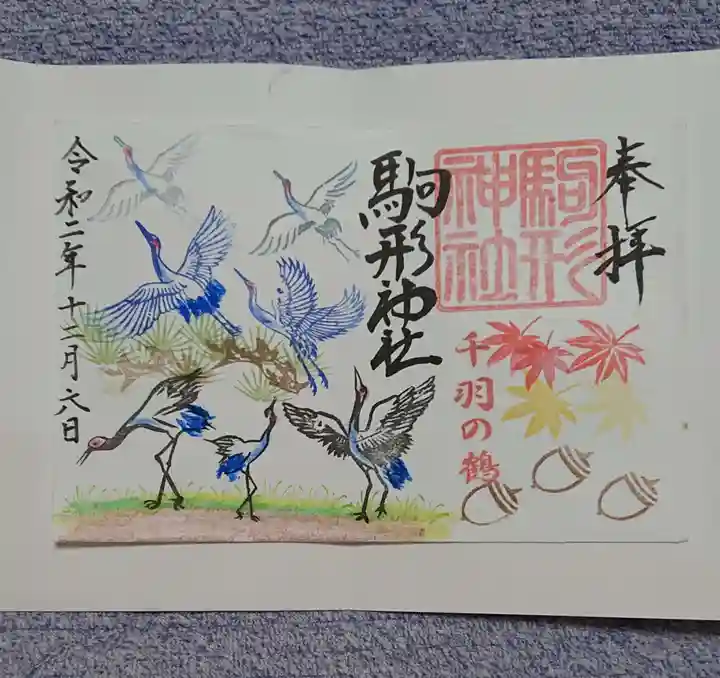 奉拝
駒形
神社
千羽の鶴
駒形神社
令和二年十二月六日